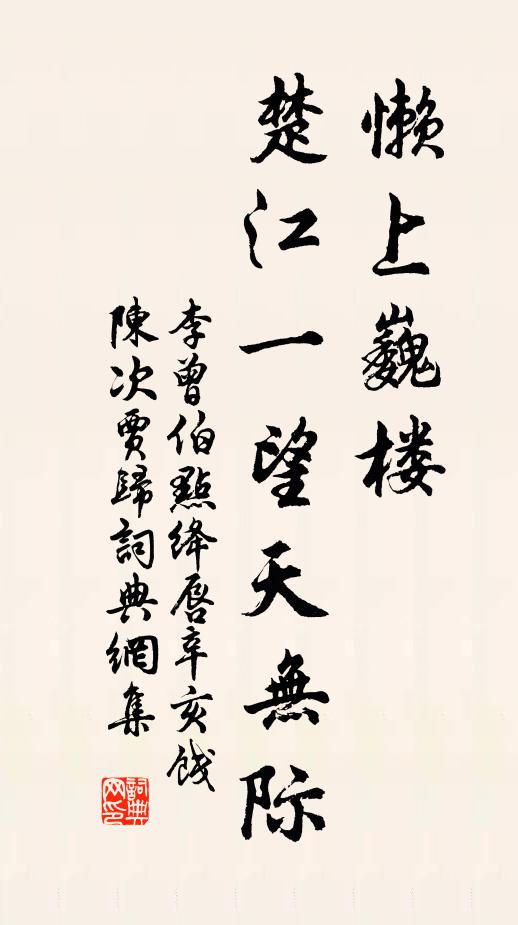 懒上巍楼
楚江一望天無际
李曾伯點绛唇辛亥餞
陳次賈歸詞典網集
詞典
网印